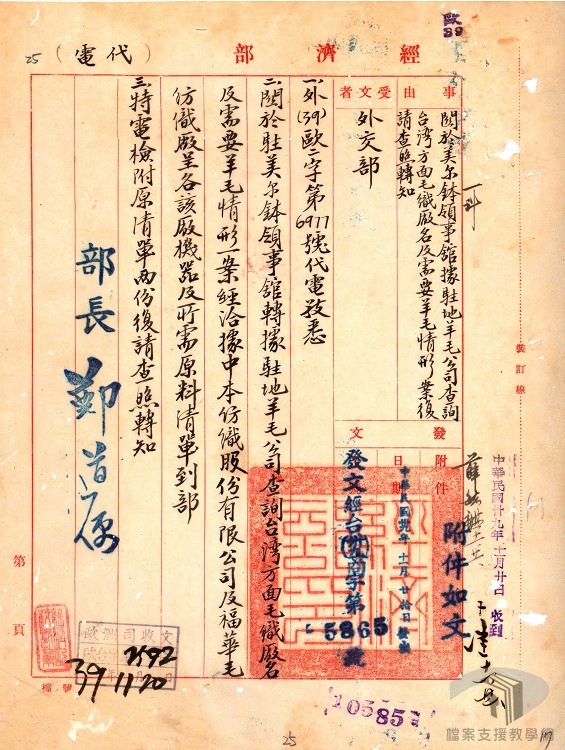 經濟部（代電）
25
歐39
事由
關於美尔鉢領事舘據駐地羊毛公司查詢
台湾方面毛織廠名及需要羊毛情形一案復
請查照轉知
受文者
外交部
發文
附件
附件如文
日期
中華民國卅九年十一月廿拾日發出
發文經台(39)商字第
5865
號
一、外(39)歐二字第6977號代電敬悉
二、關於駐美尔鉢領事舘轉據駐地羊毛公司查詢台湾方面毛織廠名
及需要羊毛情形一案經洽據中本仿織股份有限公司及福華毛
仿織廠呈各該廠機器及所需原料清單到部
三、特電檢附原清單兩份復請查照轉知
部長 鄭道儒
裝訂線
中華民國卅九年十一月廿日
收到
第頁
歐洲司收文
2592
39 11 20
檔號
10585
25
檔案支援教學網